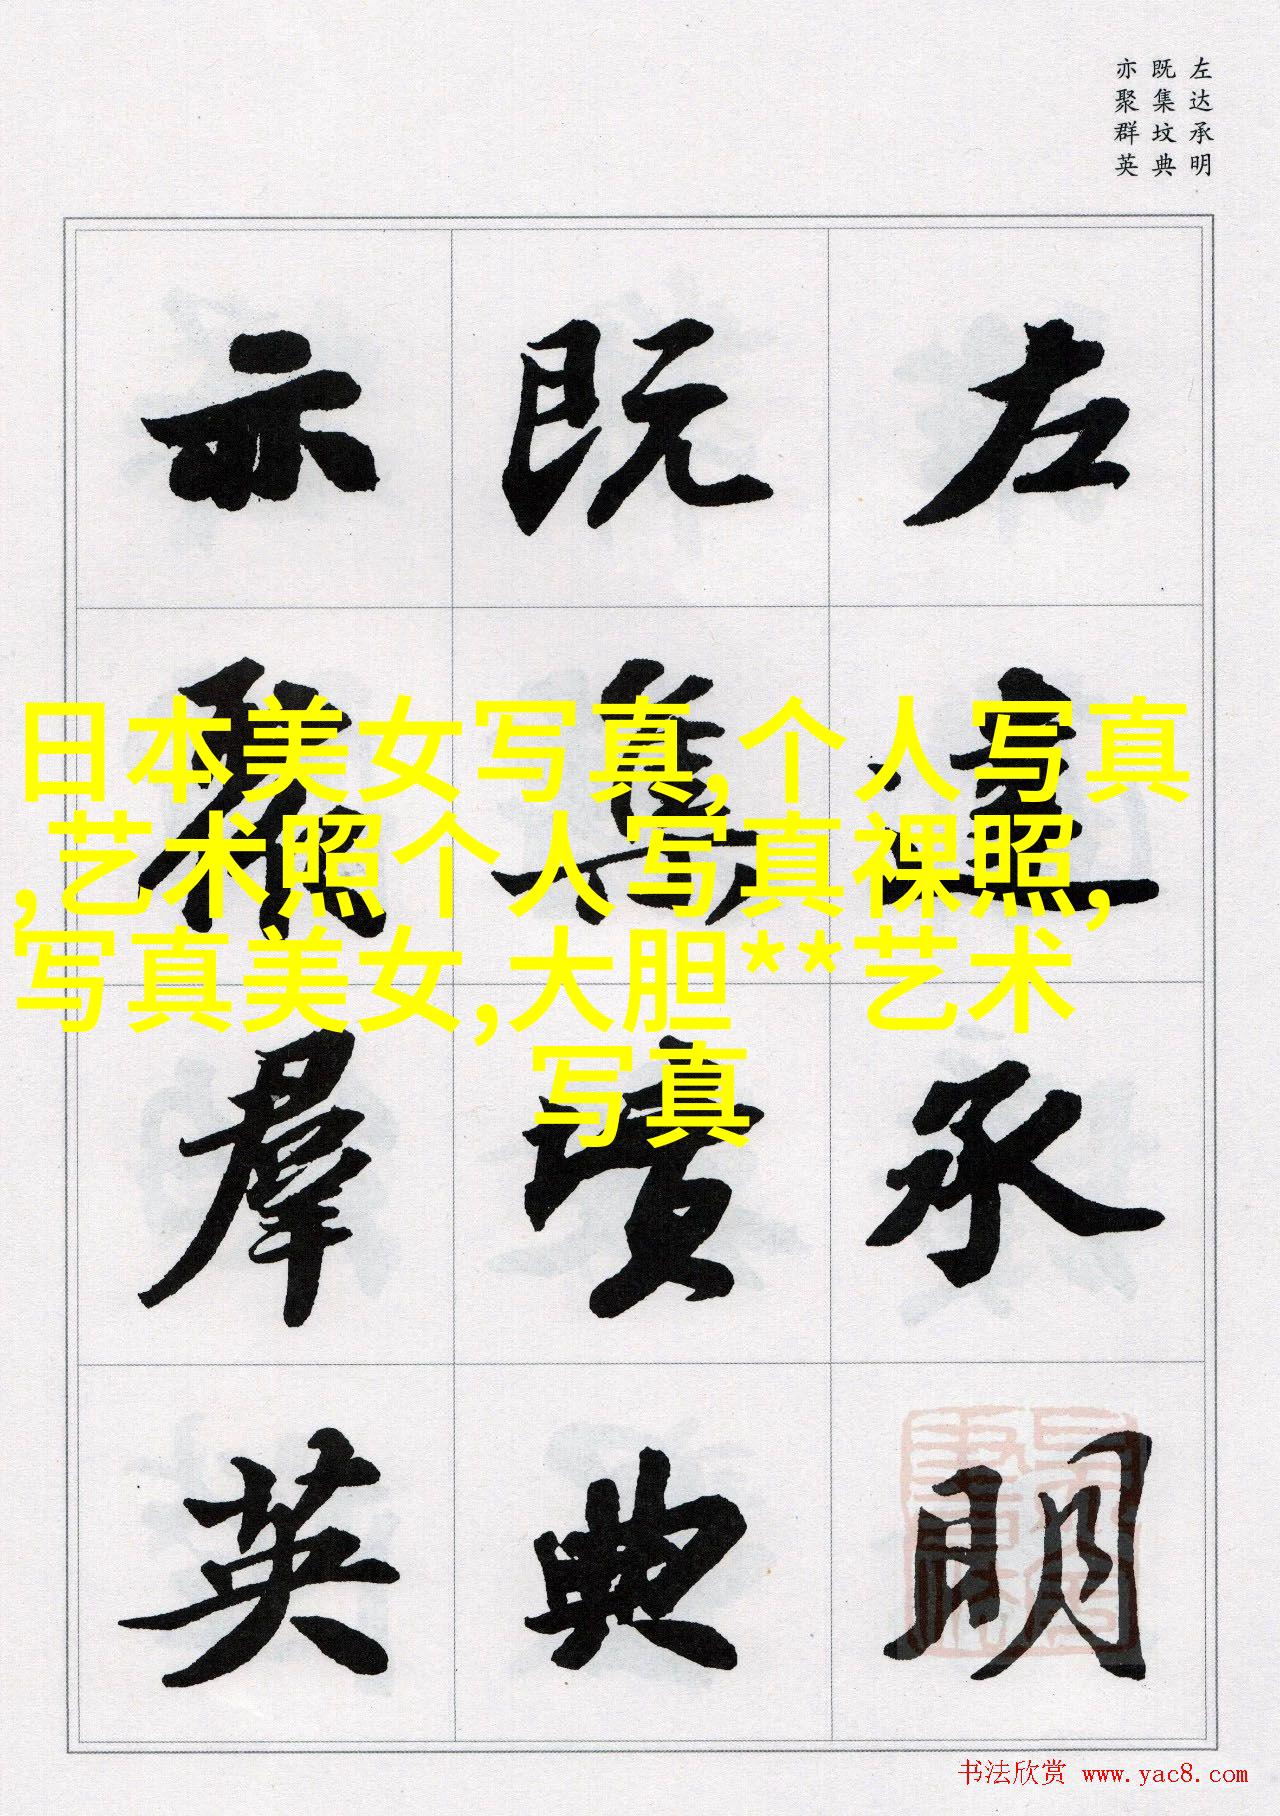 左达承明
既集坟典
亦聚群英
左達承明
既集墳典
亦聚羣英
日本美女写真,个人写真
,艺术照个人写真裸照,
写真美女,大胆**艺术
写真
书法欣赏 www.yac8.com